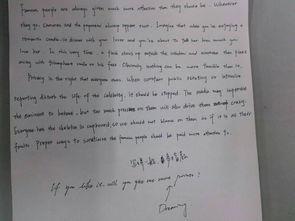 Famous people are always given much more attention than they should be. Whenever
they go, Cameras and the paparazzi always appear
romantic candle-lit dinner with your lover and you're about to tell her how much you
love her. In this very time, a flash shows up outside the window and
away with triumphant smile on his face. Obviously nothing can be more terrible than it.
Privacy is the right that everyone owns. When constant public
reporting disturb the life of the celebrity, it should be stopped. The media may supervise
the eminent to behave, but too much pressure on them will also drive them crazy.
Everyone has the skeleton in cupboard, so we should not blame on them as if it is all their
faults. Proper ways to scrutinize the famous people should be paid more attention to.
If you like it, will you give me more
Dreaming